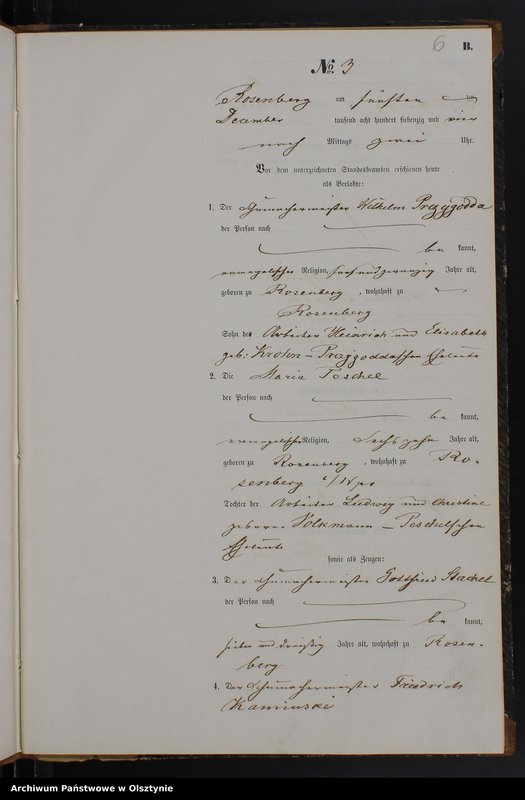 6 B.
No. 3
Rosenberg am fünften ten
December tausend acht hundert siebenzig und vier
nach Mittags zwei Uhr.
Vor dem unterzeichneten Standesbeamten erschienen heute
als Verlobte:
1. Der Schumachermeister Wilhelm Przygodda
der Person nach
be kannt,
evangelischer Religion, fünfundzwanzig Jahre alt,
geboren zu Rosenberg, wohnhaft zu
Rosenberg
Sohn des Arbeiter Heinrich und Elisabeth
geb: Krohn - Przygoddaschen Eheleute
2. Die Maria Peschel
der Person nach
be kannt,
evangelischer Religion, Sechszehn Jahre alt,
geboren zu Rosenberg, wohnhaft zu Ro-
senberg
Tochter der Arbeiter Ludwig und Christine
geborene Volkmann - Peschelschen
Eheleute
sowie als Zeugen:
3. Der Schumachermeister Gottfried Stachel
der Person nach
be kannt,
sieben und dreißig Jahre alt, wohnhaft zu Rosen-
berg
4. Der Schumachermeister Friedrich
Kaminski
Archiwum Państwowe w Olsztynie